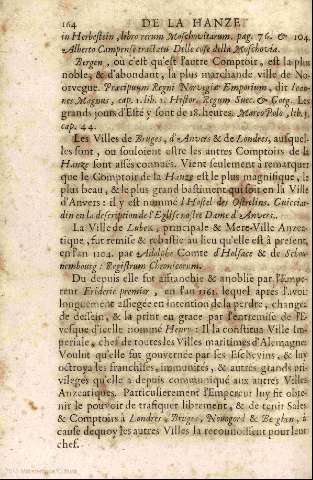 164 DE LA HANZE
in Herbestein, libro rerum Moschovitarum. pag. 76. & 104.
Alberto Campense tractatu Delle cose della Moschovia.
Bergen, ou c'est qu'est l'autre Comptoir, est la plus
noble, & d'abondant, la plus marchande ville de No-
orvegue. Præcipuum Regni Norvegiæ Emporium, dit Ioan-
nes Magnus, cap. 1. lib. 1. Histor. Regum Suec. & Gotg. Les
grands jours d'Esté y sont de 18. heures. Marco Polo, lib. 1.
cap. 44.
Les Villes de Bruges, d'Anvers & de Londres, ausquel-
les sont, ou souloient estre les autres Comptoirs de la
Hanze sont assés connuës. Vient seulement à remarquer
que le Comptoir de la Hanze est le plus magnifique, le
plus beau, & le plus grand bastiment qui soit en la Ville
d'Anvers: il y est nommé l'Hostel des Ostrelins. Guicciar-
din en la description de l'Eglise nostre Dame d'Anvers.
La Ville de Lubex, principale & Mere-Ville Anzea-
tique, fut remise & rebastie au lieu qu'elle est à present,
en l'an 1104. par Adolphe Comte d'Holsace & de Schou-
nembourg: Registrum Chronicorum.
Du depuis elle fut affranchie & anoblie par l'Empe-
reur Frideric premier, en l'an 1161. lequel apres l'avoir
longuement assiegée en intention de la perdre, changea
de dessein, & la print en grace par l'entremise de l'E-
vesque d'icelle nomé Henry: Il la constitua Ville Im-
periale, chef de toutes les Villes maritimes d'Alemagne
Voulut qu'elle fut gouvernée par ses Eschevins, & luy
octroya les franchises, immunités, & autres grands pri-
vileges qu'elle a depuis communiqué aux autres Villes
Anzeatiques. Particulierement l'Empereur luy fit obte-
nir le pouvoir de trafiquer librement, & de tenir Sales
& Comptoirs à Londres, Bruges, Novogord & Berghen, à
cause dequoy les autres Villes la reconnoissent pour leur
chef.